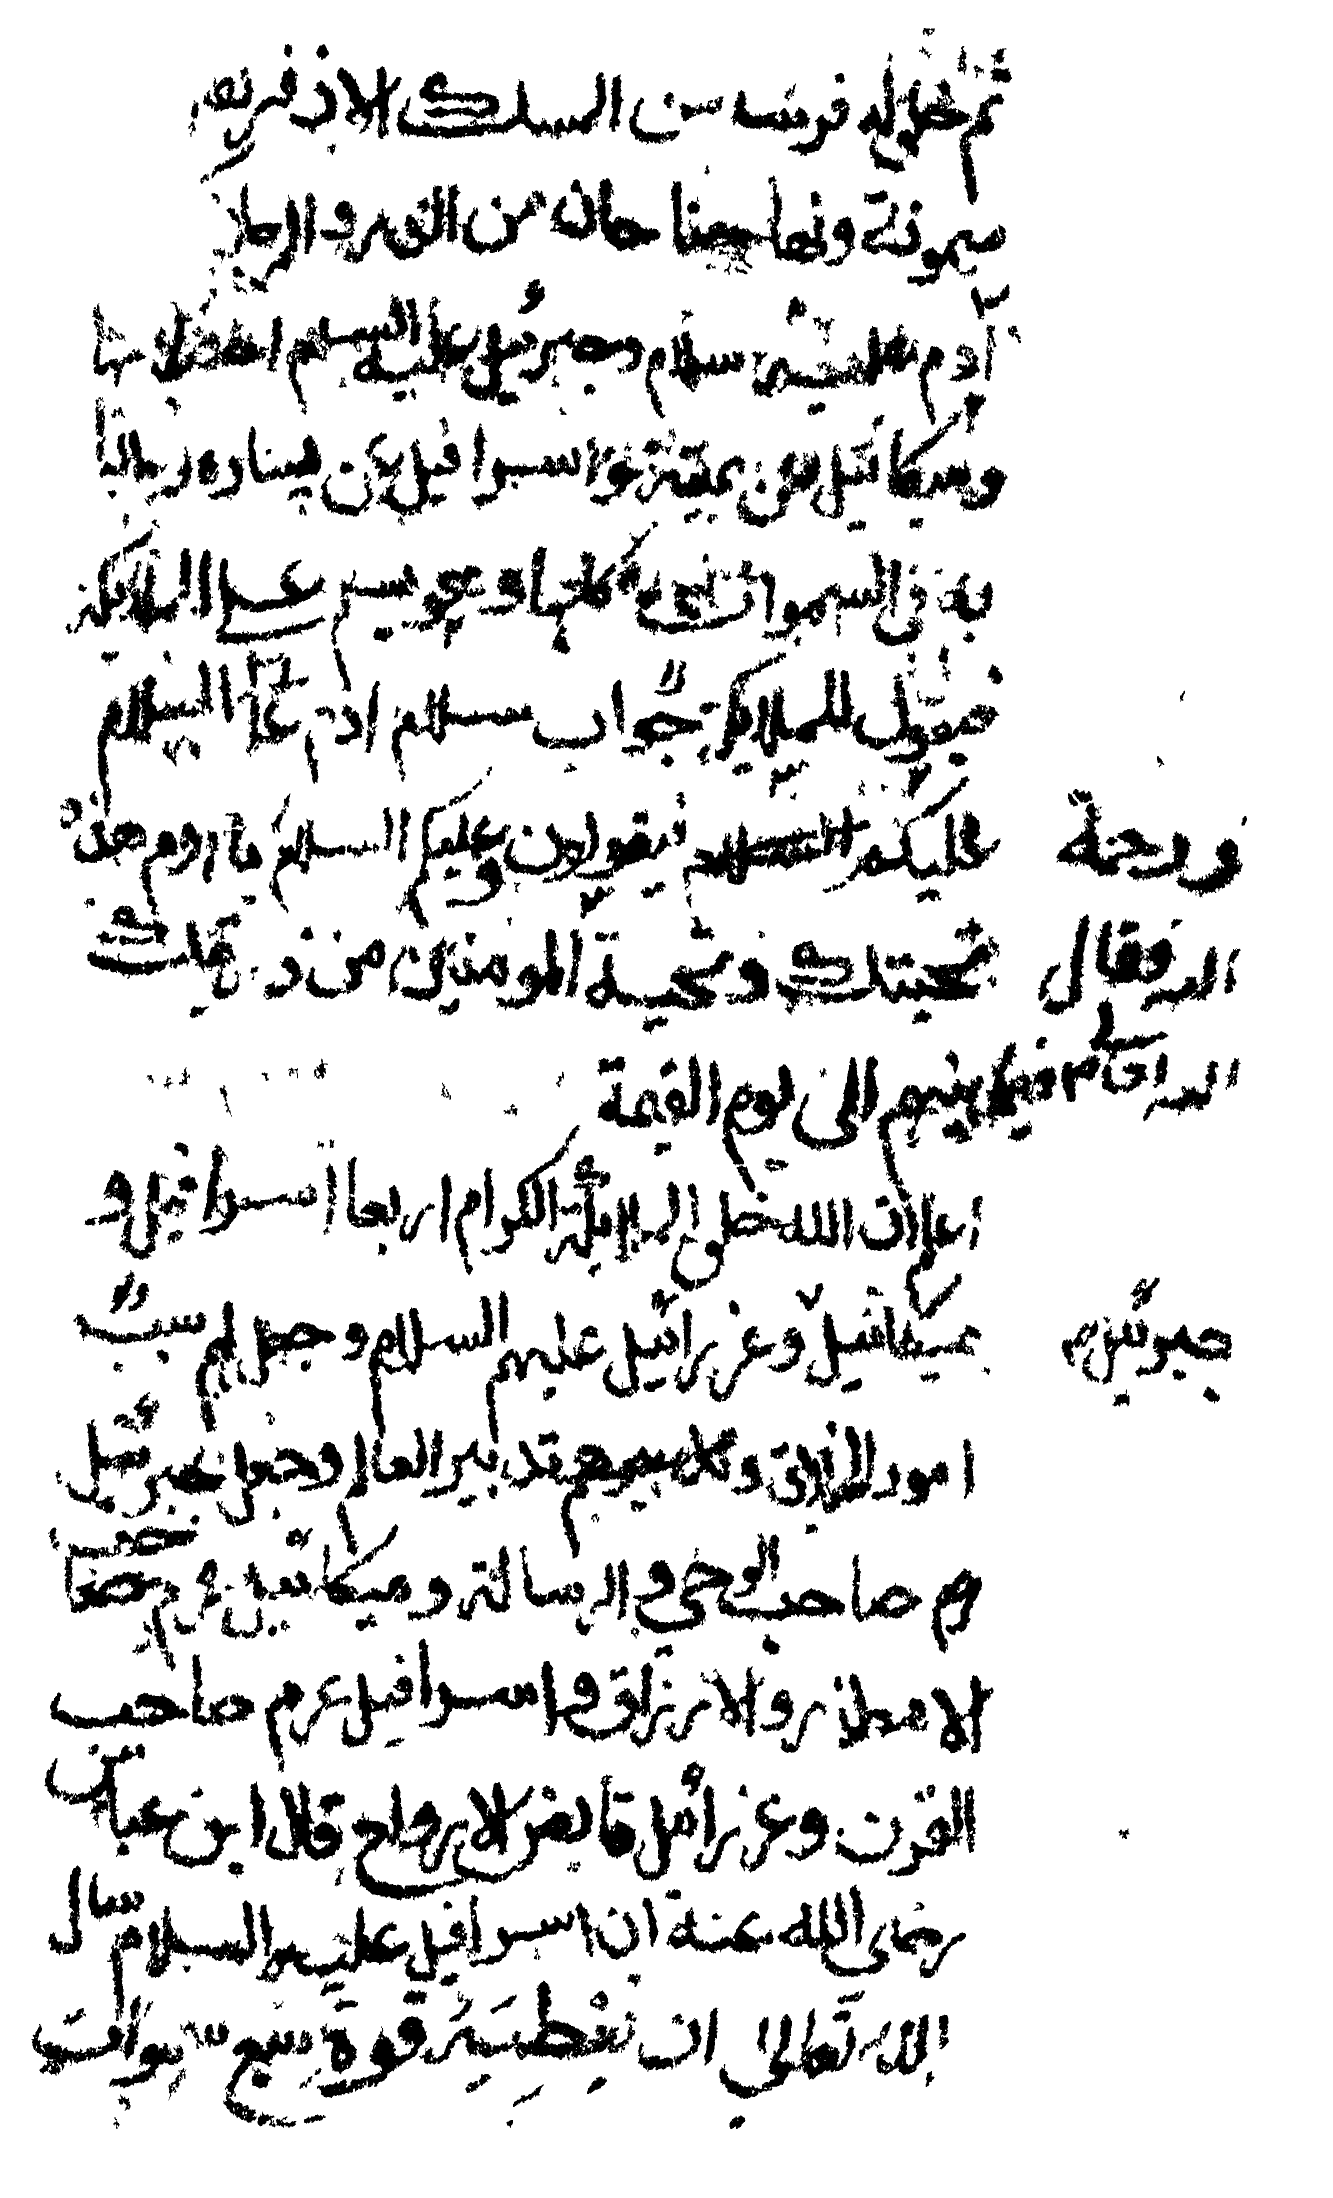 ثم خلق له فرسا من المسك الاذفر يقـ
ميمونة ولها جناحان من الدر والمرجان
آدم سلام وجبرئيل عليه السلام اخذ بلجامها
وميكائيل عن يمينه واسرافيل عن يساره وطافا
به في السموات كلها وهو يسلم على الملائكة
فيقول للملائكة جواب سلام ادم ع السلام
عليكم فيقولون وعليكم السلام يا ادم هذه
تحيتك وتحية المومنين من ذريتك
فيما بينهم الى يوم القيمة
اعلم ان الله خلق الملائكة الكرام اربعا اسرافيل و
ميكائيل وعزرائيل عليهم السلام وجعل لهم سبب
امور الخلائق وتدبير العالم وجعل جبرئيل
م صاحب الوحي والرسالة وميكائيل ع م صاحب
الامطار والارزاق واسرافيل ع م صاحب
القرن وعزرائيل قابض الارواح قال ابن عباس
رضي الله عنه ان اسرافيل عليه السلام سال
الله تعالى ان يعطيه قوة سبع سموات
ورحمة
الله فقال
الله تعالى
جبرئيل م